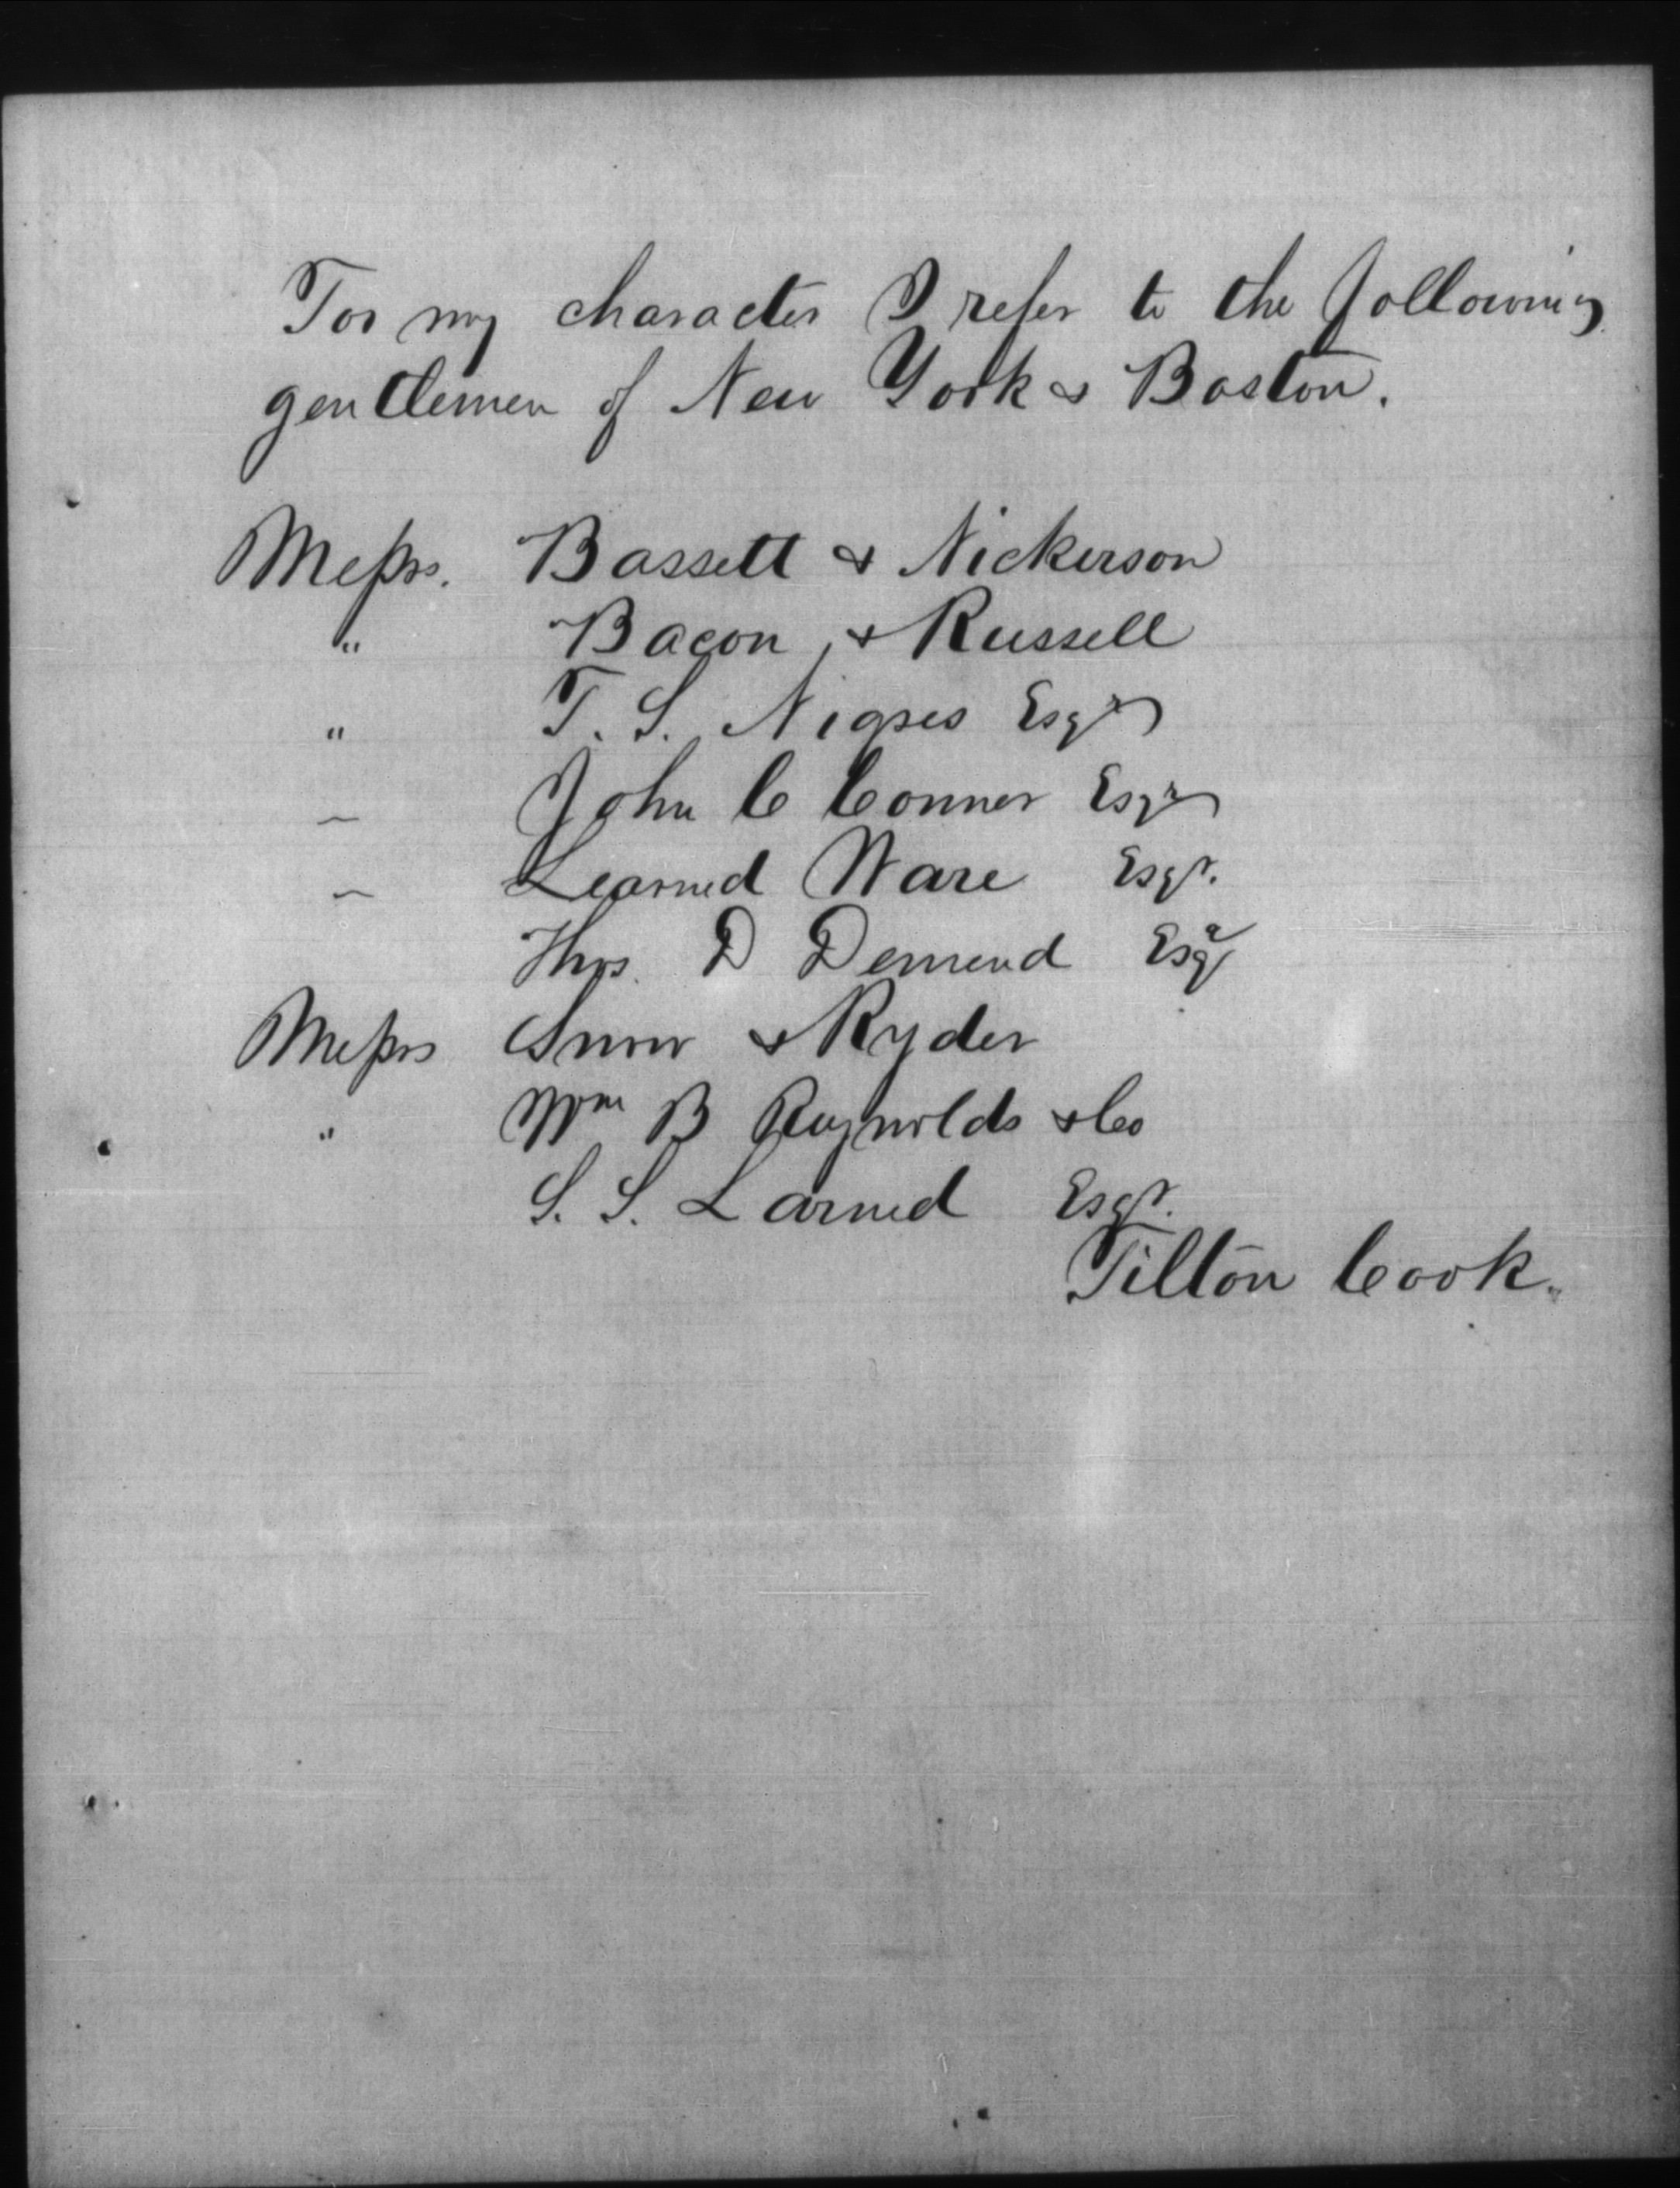 For my character I refer to the following
gentlemen of New York & Boston.
Messrs. Bassett & Nickerson
" Bacon & Russell
" T. S. Esqr
— John C Conner Esqr
— Learned Ware Esqr.
Thos. D Demend Esqr
Messrs Snow & Ryder
" Wm B Reynolds & Co
S. S. Larned Esqr.
Tilton Cook.